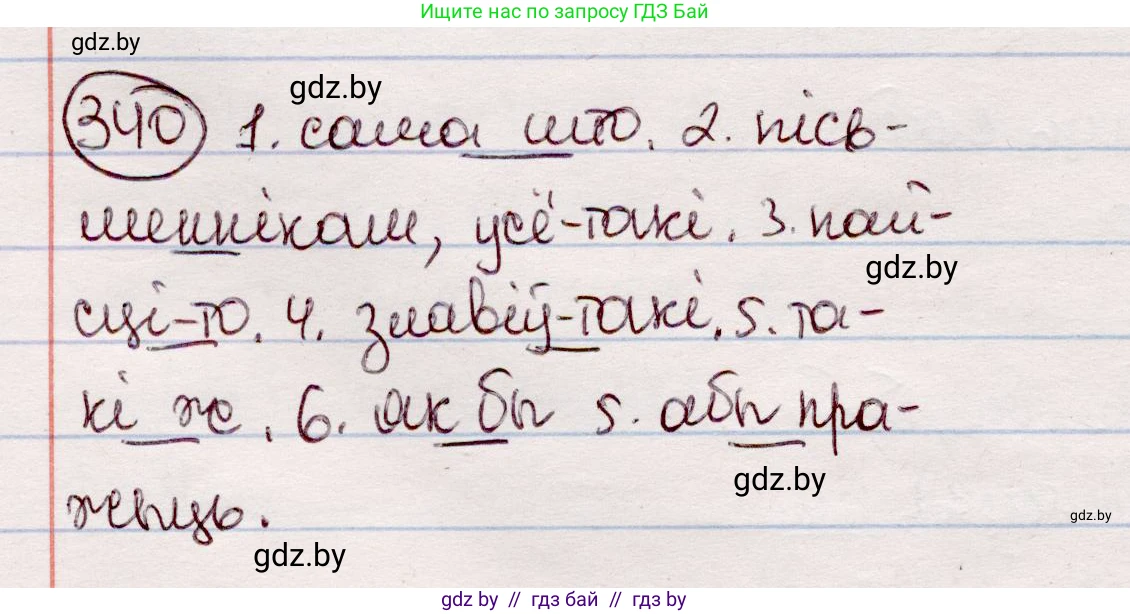 Ищите нас по запросу ГДЗ Бай
gdz.by
gdz.by
340 1. сама што. 2. пісь-
меннікам, усё-такі. 3. пай-
gdz.by
сці-то. 4. злавіў-такі. 5. та-
кі ж. 6. як бы 5. абы пра-
gdz.by
жыць.
gdz.by
gdz.by
gdz.by // гдз бай // гдз by